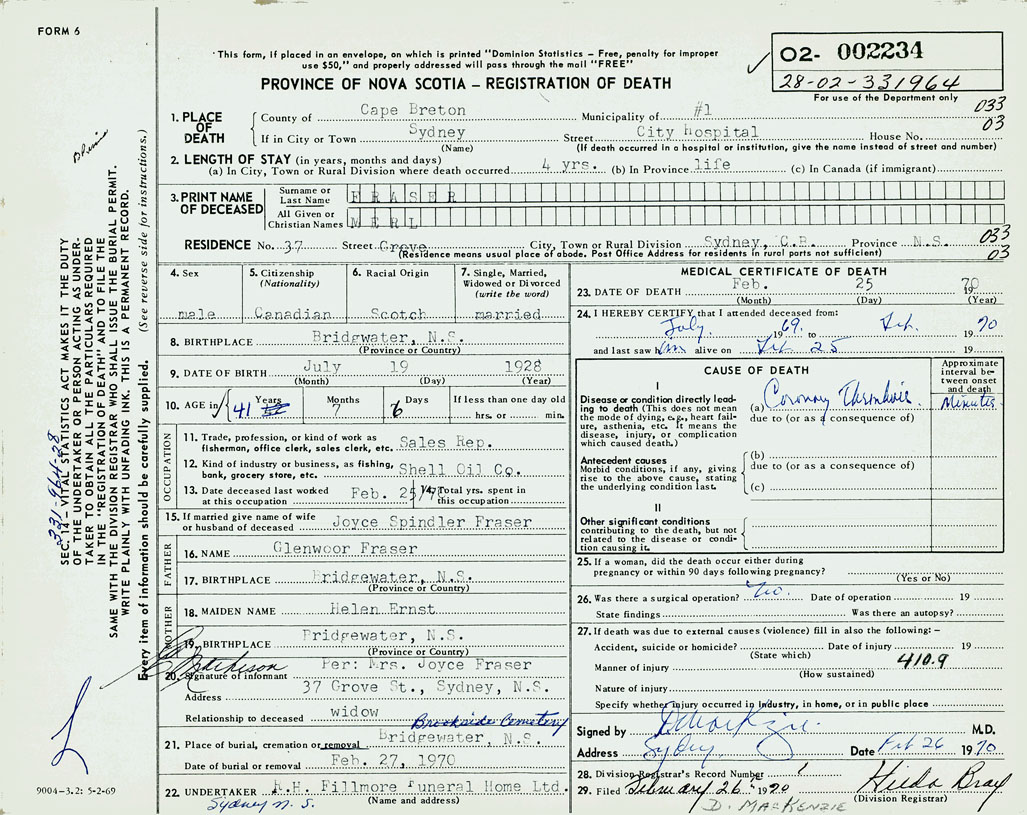 FORM 6
"This form, if placed in an envelope, on which is printed "Dominion Statistics – Free, penalty for improper
use $50," and properly addressed will pass through the mail "FREE"
PROVINCE OF NOVA SCOTIA – REGISTRATION OF DEATH
02- 002234
28-02-331964
For use of the Department only
033
03
1. PLACE OF DEATH
County of Cape Breton Municipality of #1
If in City or Town Sydney Street City hospital House No.
(Name) (If death occurred in a hospital or institution, give the name instead of street and number)
2. LENGTH OF STAY (in years, months and days)
(a) In City, Town or Rural Division where death occurred 4 yrs. (b) In Province life (c) In Canada (if immigrant)
3. PRINT NAME OF DECEASED
Surname or Last Name FRASER
All Given or Christian Names MERL
RESIDENCE No. 37 Street Grove City, Town or Rural Division Sydney, C.B. Province N.S.
(Residence means usual place of abode. Post Office Address for residents in rural parts not sufficient)
033
03
4. Sex
male
5. Citizenship
(Nationality)
Canadian
6. Racial Origin
Scotch
7. Single, Married,
Widowed or Divorced
(write the word)
married
8. BIRTHPLACE Bridgwater, N.S.
(Province or Country)
9. DATE OF BIRTH July 19 1928
(Month) (Day) (Year)
10. AGE in Years 41 Months 7 Days 6 If less than one day old
hrs. or min.
OCCUPATION
11. Trade, profession, or kind of work as
fisherman, office clerk, sales clerk, etc. Sales Rep.
12. Kind of industry or business, as fishing,
bank, grocery store, etc. Shell Oil Co.
13. Date deceased last worked
at this occupation Feb. 25/70
14. Total yrs. spent in
this occupation
15. If married give name of wife
or husband of deceased Joyce Spindler Fraser
FATHER
16. NAME Glenwoor Fraser
17. BIRTHPLACE Bridgewater, N.S.
(Province or Country)
MOTHER
18. MAIDEN NAME Helen Ernst
19. BIRTHPLACE Bridgewater, N.S.
(Province or Country)
20. Signature of informant Per: Mrs. Joyce Fraser
Address 37 Grove St., Sydney, N.S.
Relationship to deceased widow
Brookside Cemetery
21. Place of burial, cremation or removal Bridgewater, N.S.
Date of burial or removal Feb. 27, 1970
22. UNDERTAKER A.H. Fillmore Funeral Home Ltd.
Sydney N.S. (Name and address)
MEDICAL CERTIFICATE OF DEATH
23. DATE OF DEATH Feb. 25 1970
(Month) (Day) (Year)
24. I HEREBY CERTIFY that I attended deceased from:
July 1969 to Feb. 1970
and last saw him alive on Feb 25 19
CAUSE OF DEATH
Approximate
interval be-
tween onset
and death
I
Disease or condition directly lead-
ing to death (This does not mean
the mode of dying, e.g., heart fail-
ure, asthenia, etc. It means the
disease, injury, or complication
which caused death.)
(a) Coronary Thrombosis Minutes
due to (or as a consequence of)
Antecedent causes
Morbid conditions, if any, giving
rise to the above cause, stating
the underlying condition last.
(b)
due to (or as a consequence of)
(c)
II
Other significant conditions
contributing to the death, but not
related to the disease or condi-
tion causing it.
25. If a woman, did the death occur either during
pregnancy or within 90 days following pregnancy?
(Yes or No)
26. Was there a surgical operation? No. Date of operation 19
State findings Was there an autopsy?
27. If death was due to external causes (violence) fill in also the following: –
Accident, suicide or homicide? Date of injury 19
(State which)
410.9
Manner of injury
(How sustained)
Nature of injury
Specify whether injury occurred in industry, in home, or in public place
Signed by M.D.
Address Sydney Date Feb 26 1970
28. Division Registrar's Record Number
29. Filed February 26 1970 Hilda Bray
(Division Registrar)
D. MACKENZIE
331-964-28
SEC. 14 – VITAL STATISTICS ACT MAKES IT THE DUTY
OF THE UNDERTAKER OR PERSON ACTING AS UNDER-
TAKER TO OBTAIN ALL THE PARTICULARS REQUIRED
IN THE "REGISTRATION OF DEATH" AND TO FILE THE
SAME WITH THE DIVISION REGISTRAR WHO SHALL ISSUE THE BURIAL PERMIT.
WRITE PLAINLY WITH UNFADING INK. THIS IS A PERMANENT RECORD.
Every item of information should be carefully supplied. (See reverse side for instructions.)
9004-3.2: 5-2-69